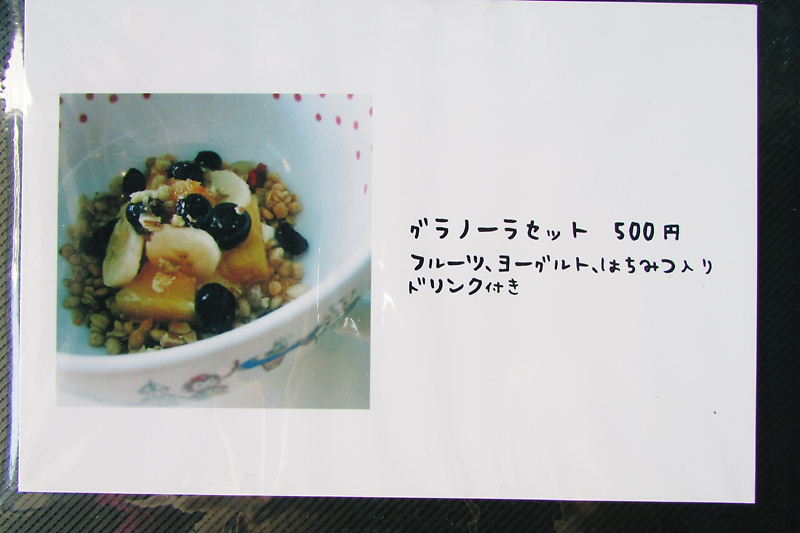 グラノーラセット 500円
フルーツ、ヨーグルト、はちみつ入り
ドリンク付き